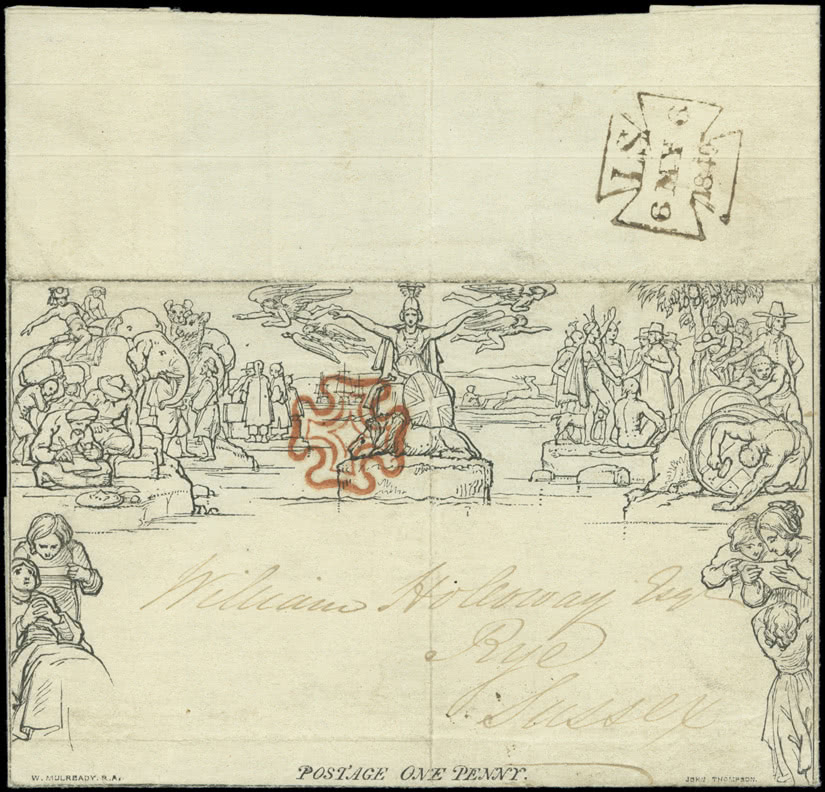 LS
MY
1840
William Holloway Esqr
Rye
Sussex
W. MULREADY. R.A.
POSTAGE ONE PENNY.
JOHN THOMPSON.